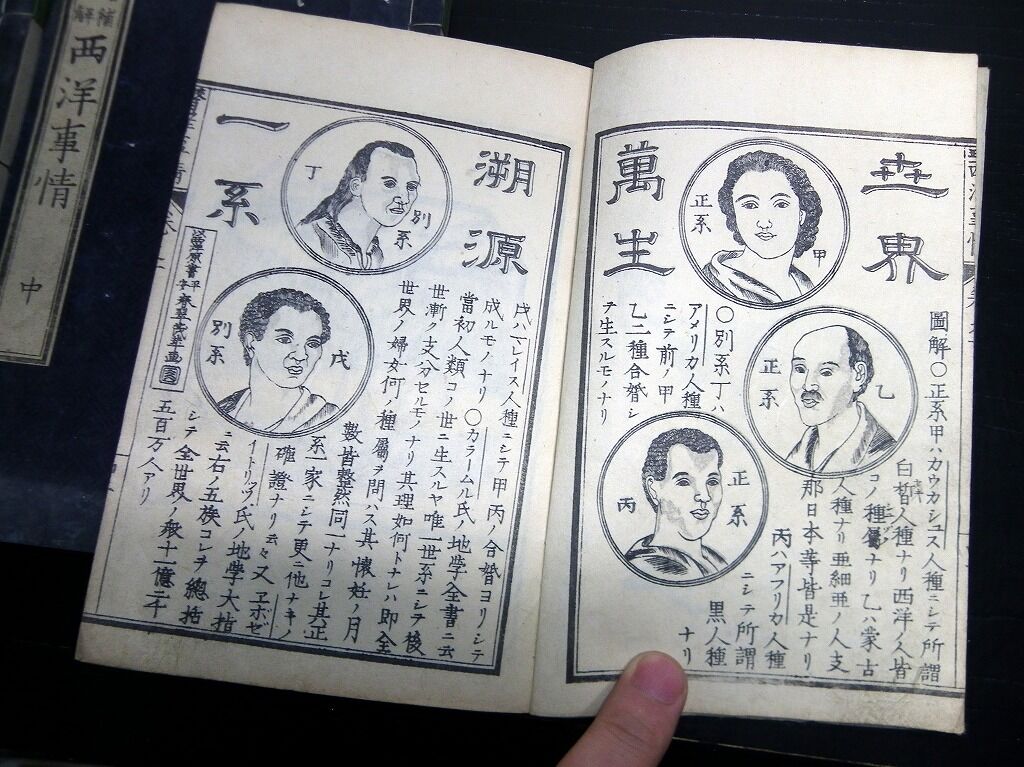 西洋事情
中
世界
萬生
溯源
一系
正系
甲
正系
乙
正系
丙
別系
丁
別系
戊
圖解〇正系甲ハカウカシュス人種ニシテ所謂
白皙人種ナリ西洋ノ人皆
コノ種屬ナリ乙ハ蒙古
人種ナリ亜細亜ノ人支
那日本等皆是ナリ
丙ハアフリカ人種
ニシテ所謂
黒人種
ナリ
〇別系丁ハ
アメリカ人種
ニシテ前ノ甲
乙二種合婚シ
テ生スルモノナリ
戊ハマレイス人種ニシテ甲丙ノ合婚ヨリシテ
成ルモノナリ〇カラームル氏ノ地學全書ニ云
當初人類コノ世ニ生スルヤ唯一世系ニシテ後
世漸ク支分セルモノナリ其理如何トナレハ即全
世界ノ婦女何ノ種屬ヲ問ハス其懐妊ノ月
數皆整然同一ナリコレ其正
系一家ニシテ更ニ他ナキノ
確證ナリ云々又ヱボゼ
イトリップ氏ノ地學大指
ニ云右ノ五族コレヲ總括
シテ全世界ノ衆十一億二千
五百万人アリ